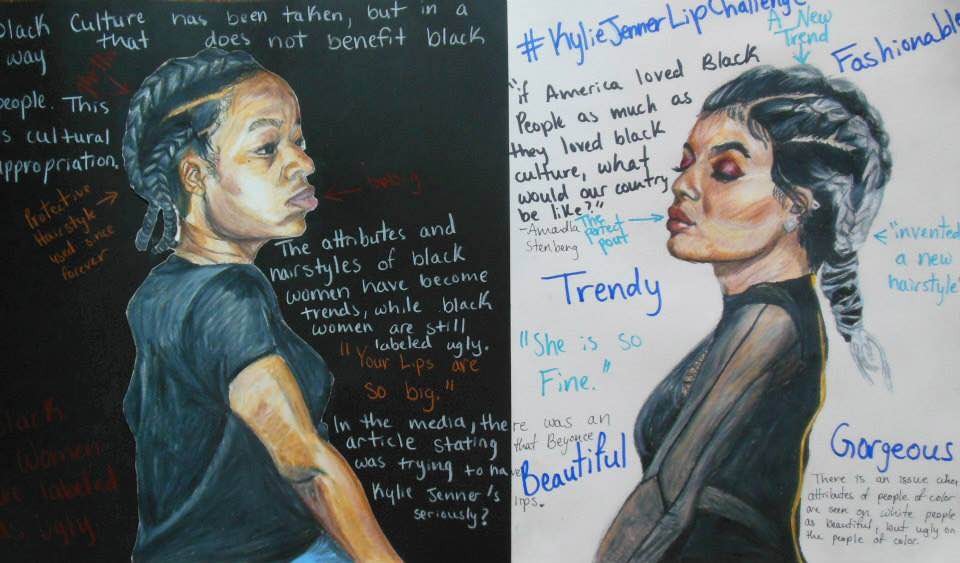 Black Culture has been taken, but in a
way that does not benefit black
people. This
is cultural
appropriation.
Protective
Hairstyle
used since
forever
too big
The attributes and
hairstyles of black
women have become
trends, while black
women are still
labeled ugly.
"Your Lips are
so big."
In the media, there was an
article stating that Beyonce
was trying to have
Kylie Jenner's lips.
seriously?
Black
women
are labeled
ugly
#KylieJennerLipChallenge
A New
Trend
Fashionable
"if America loved Black
People as much as
they loved black
culture, what
would our country
be like?"
-Amandla
Stenberg
The
perfect
pout
"invented
a new
hairstyle"
Trendy
"She is so
Fine."
Beautiful
Gorgeous
There is an issue when
attributes of people of color
are seen on white people
as beautiful, but ugly on
the people of color.